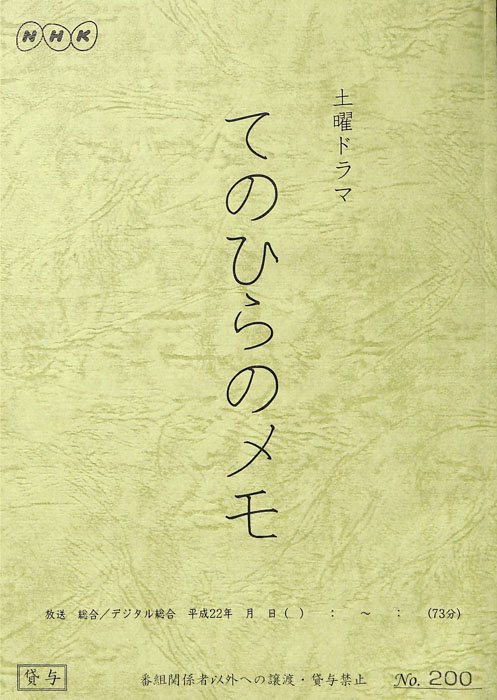 NHK
土曜ドラマ
てのひらのメモ
放送　総合／デジタル総合　平成22年　月　日(　)　：　～　：　(73分)
貸与
番組関係者以外への譲渡・貸与禁止
No. 200